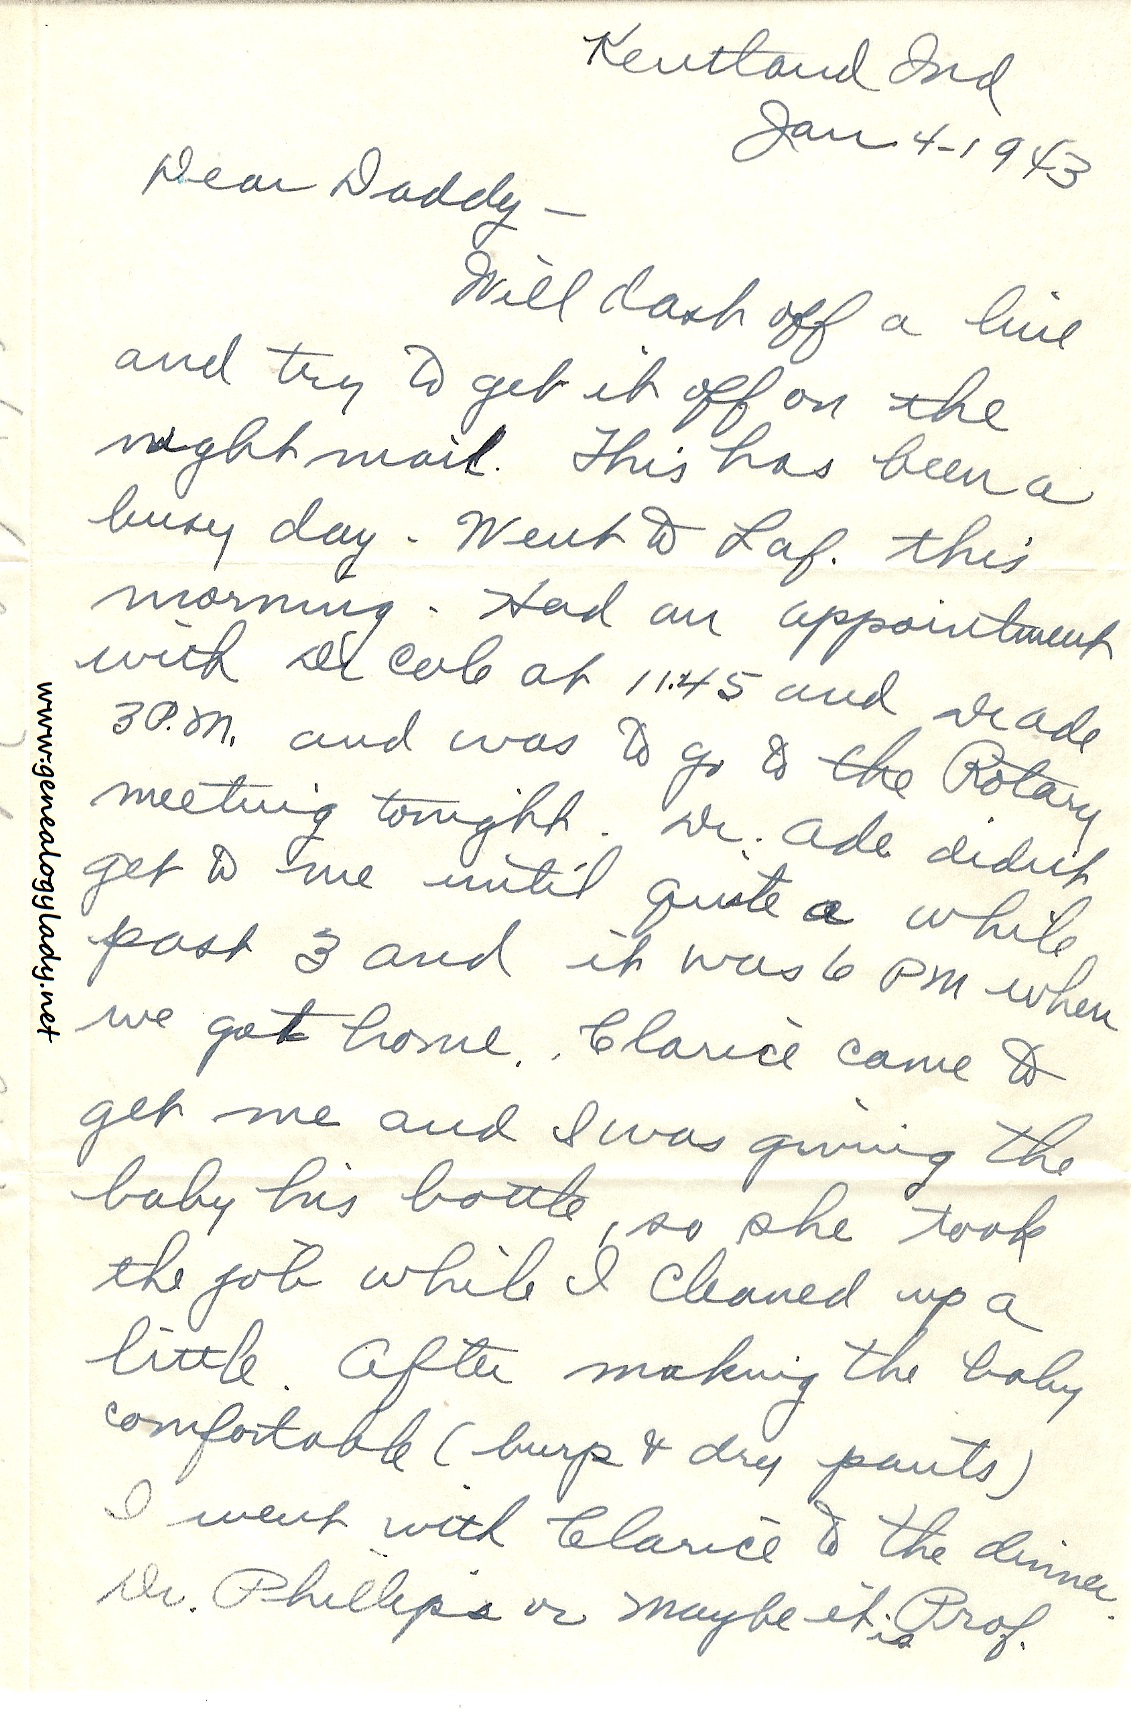 Kentland Ind
Jan 4-1943
Dear Daddy –
Will dash off a line
and try to get it off on the
night mail. This has been a
busy day. Went to Laf. this
morning. Had an appointment
with Dr Cole at 11:45 and Dr Ade
3 P.M. and was to go to the Rotary
meeting tonight. Dr. Ade didn't
get to me until quite a while
past 3 and it was 6 PM when
we got home. Clarice came to
get me and I was giving the
baby his bottle, so she took
the job while I cleaned up a
little. After making the baby
comfortable (burp & dry pants)
I went with Clarice to the dinner.
Dr. Phillips or maybe it is Prof.
www.genealogylady.net